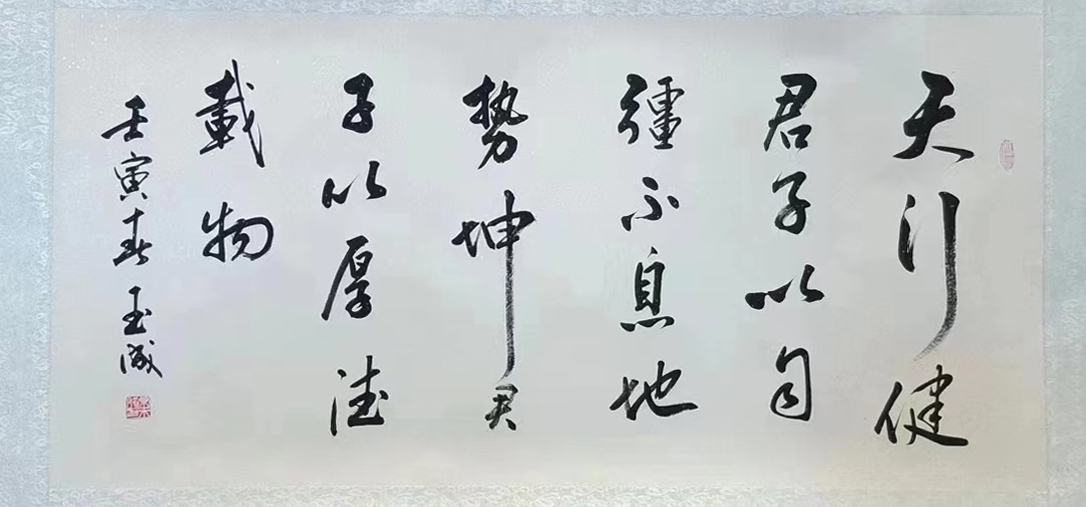 天行健
君子以自
彊不息地
勢坤君
子以厚德
載物
壬寅春玉